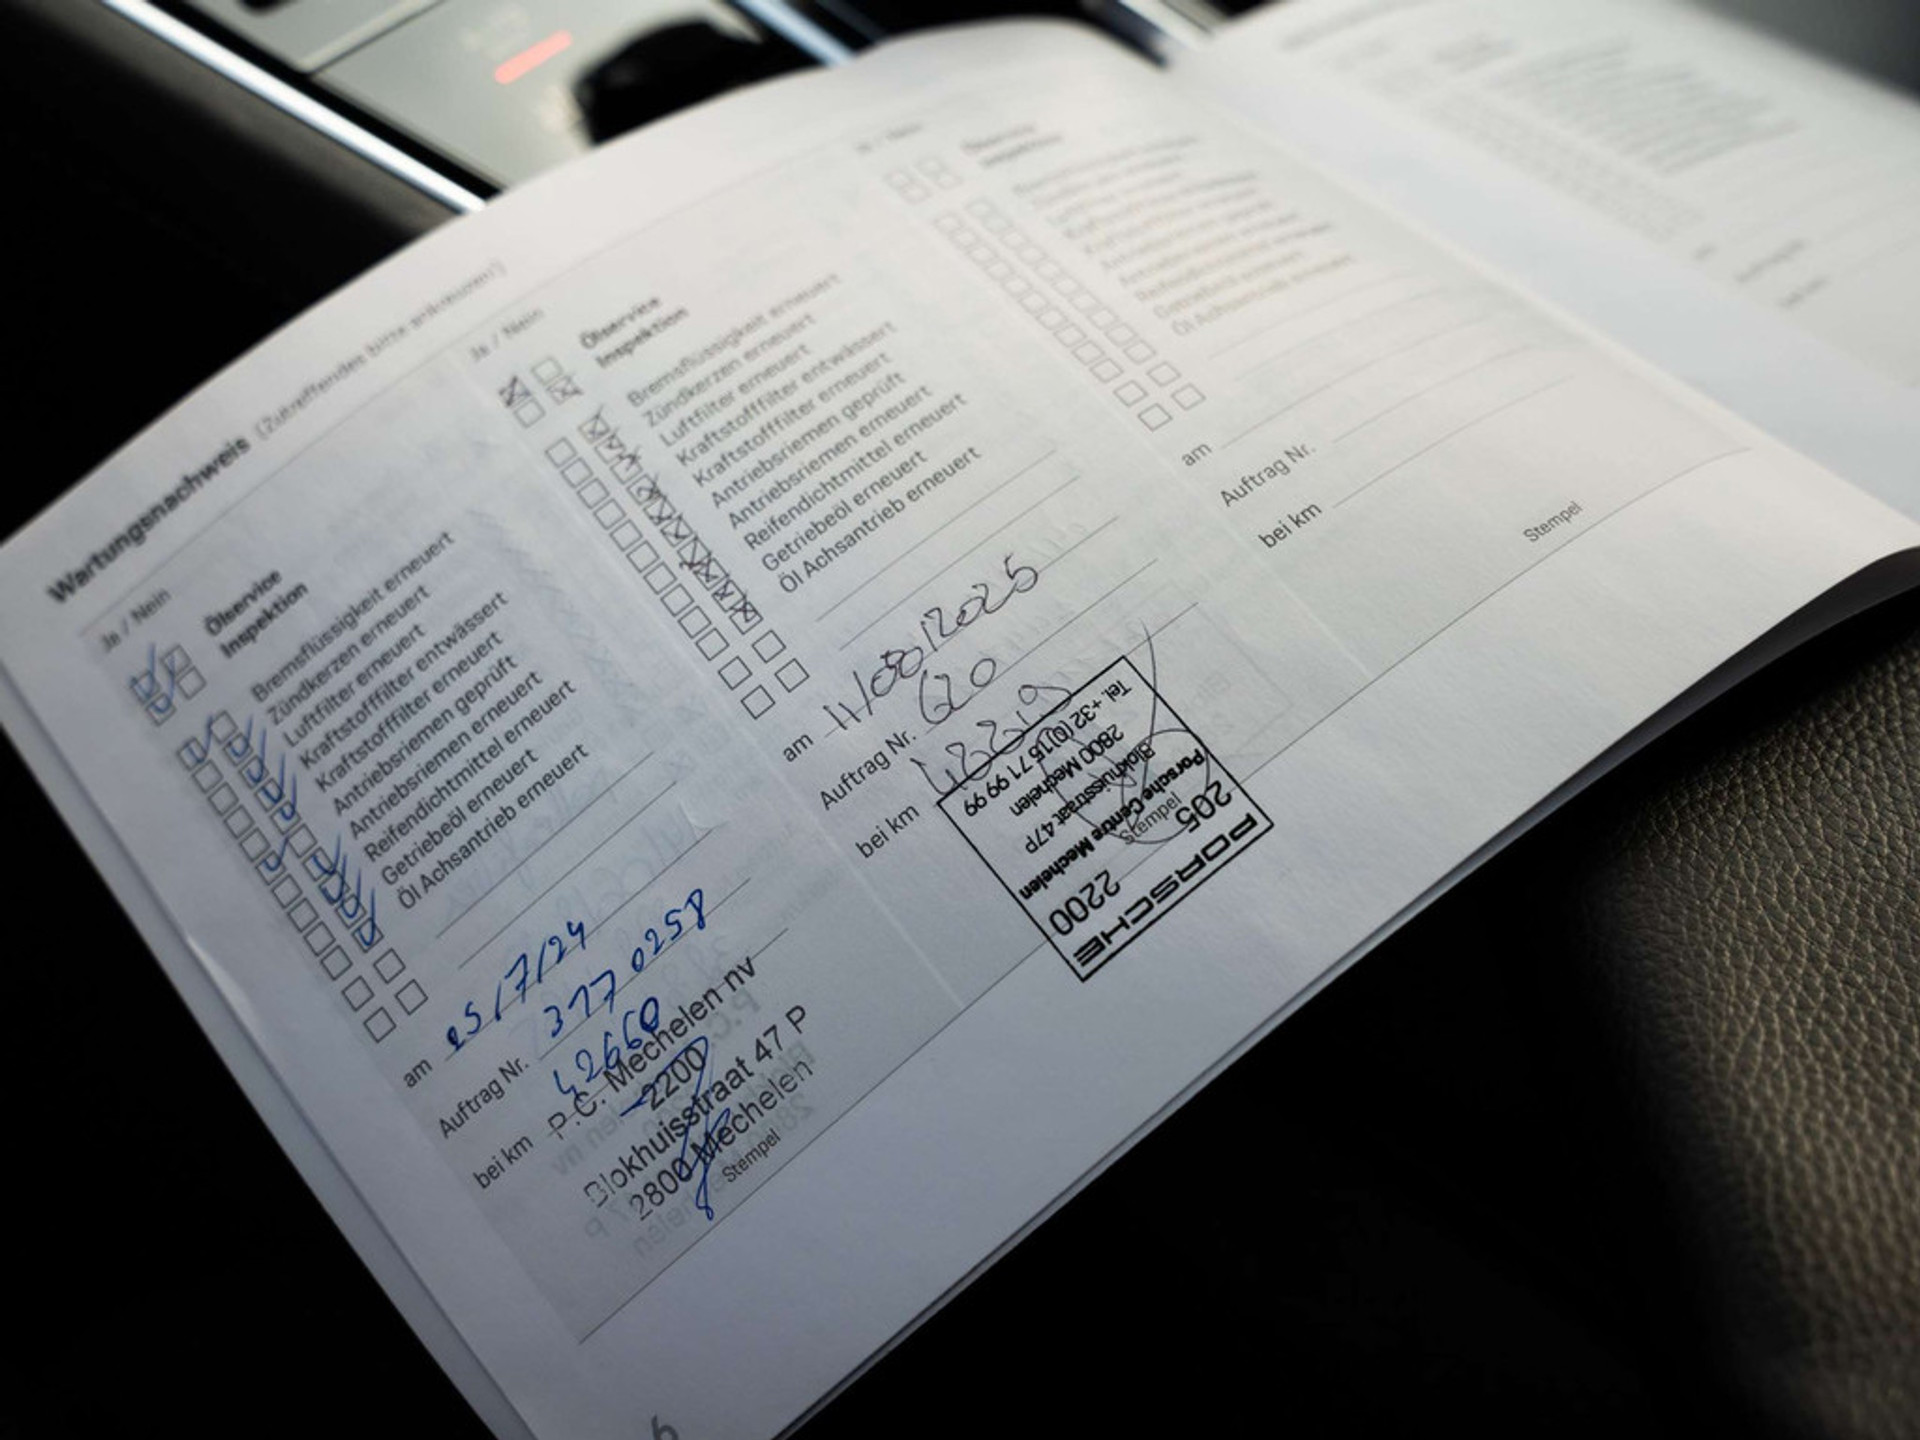 Wartungsnachweis (Zutreffendes bitte ankreuzen!)
Ja / Nein
Ölservice
Inspektion
Bremsflüssigkeit erneuert
Zündkerzen erneuert
Luftfilter erneuert
Kraftstofffilter entwässert
Kraftstofffilter erneuert
Antriebsriemen geprüft
Antriebsriemen erneuert
Reifendichtmittel erneuert
Getriebeöl erneuert
Öl Achsantrieb erneuert
am 25/7/24
Auftrag Nr. 3170258
bei km 42660
P.C. Mechelen nv
2200
Blokhuisstraat 47 P
2800 Mechelen
Stempel
Ja / Nein
Ölservice
Inspektion
Bremsflüssigkeit erneuert
Zündkerzen erneuert
Luftfilter erneuert
Kraftstofffilter entwässert
Kraftstofffilter erneuert
Antriebsriemen geprüft
Antriebsriemen erneuert
Reifendichtmittel erneuert
Getriebeöl erneuert
Öl Achsantrieb erneuert
am 11/08/2025
Auftrag Nr. 620
bei km
PORSCHE
205 2200
Porsche Centre Mechelen
Blokhuisstraat 47P
2800 Mechelen
Tel. +32 (0)15 71 99 99
Stempel
Ja / Nein
am
Auftrag Nr.
bei km
Stempel
6